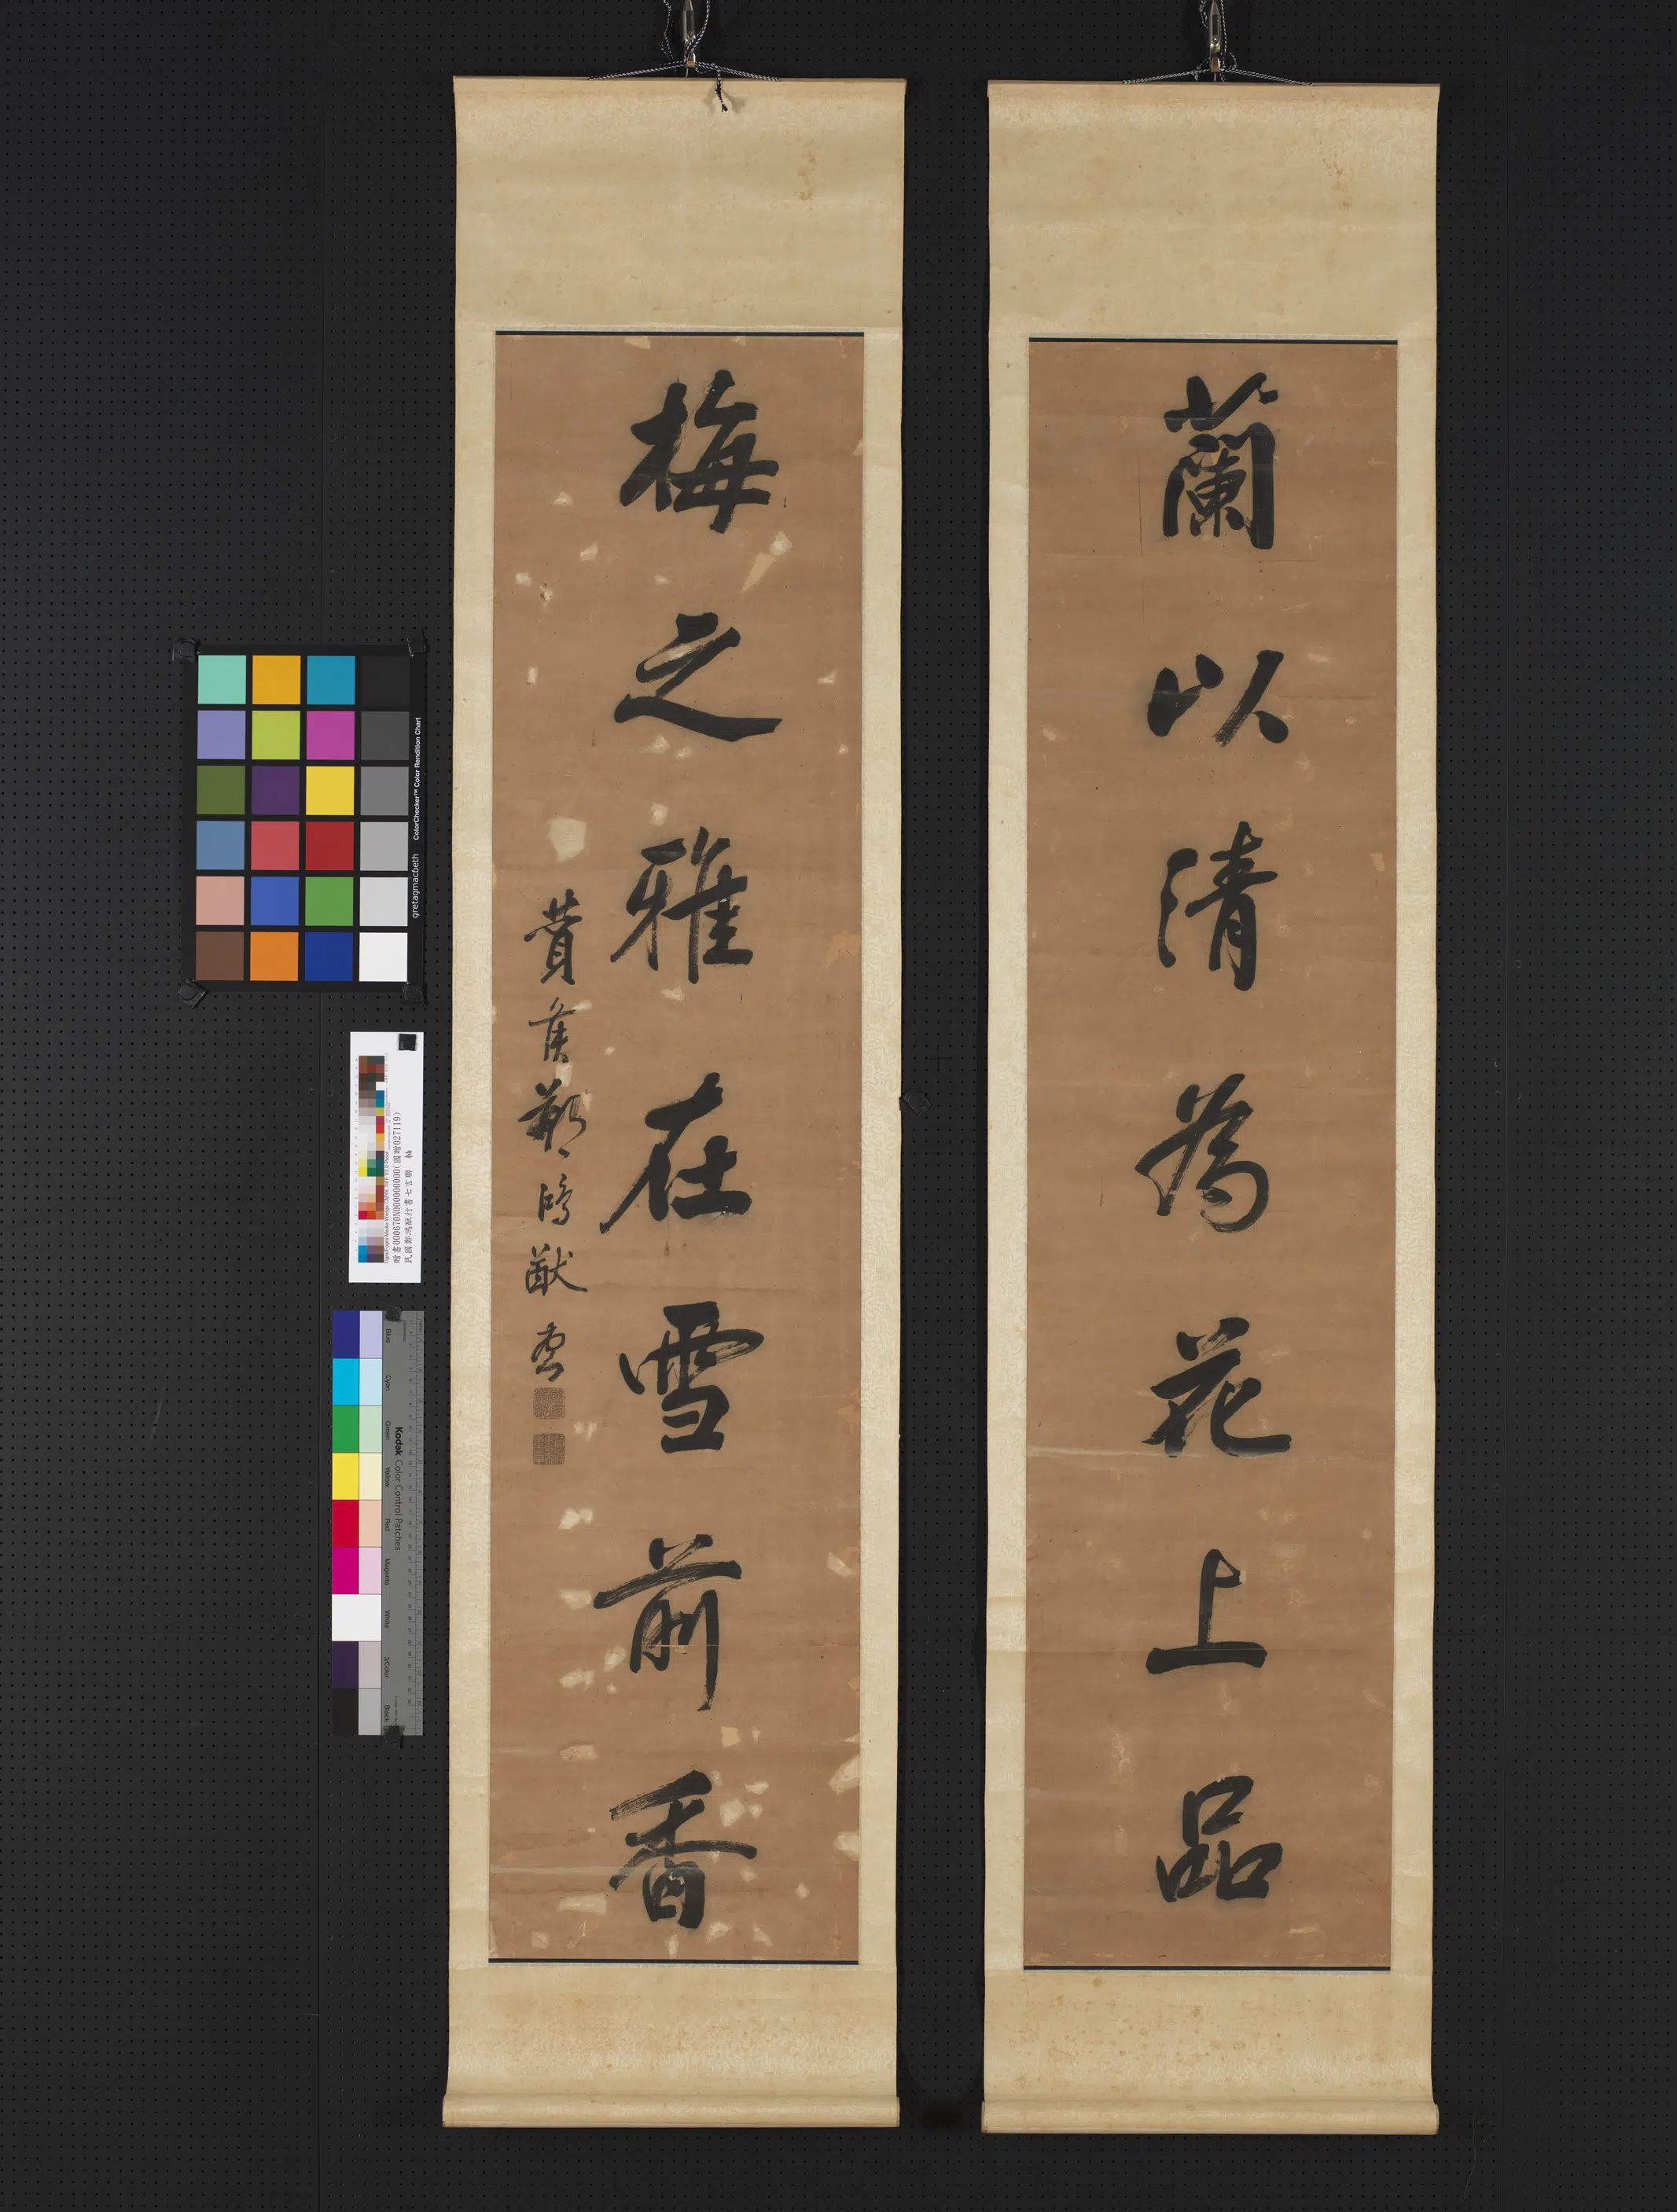 蘭以清為花上品
梅之雅在雪前香
鄭鴻猷書
ColorChecker™ Color Rendition Chart
gretagmacbeth
民國鄭鴻猷行書七言聯 軸
Kodak Color Control Patches
Blue
Cyan
Green
Yellow
Red
Magenta
White
3/Color
Black